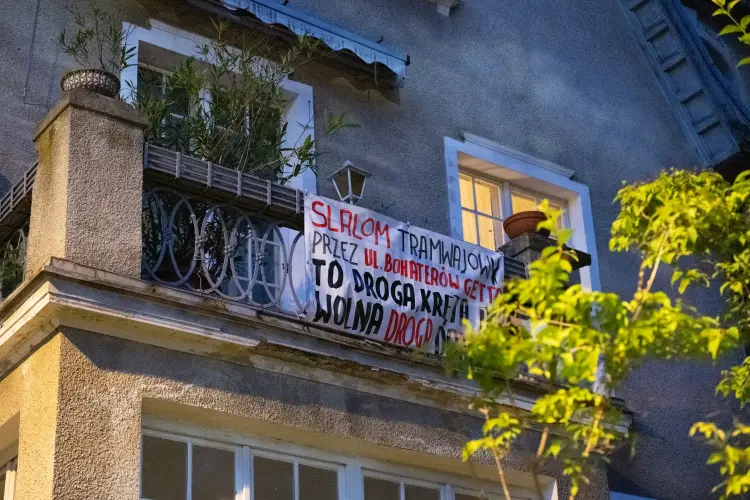 SLALOM TRAMWAJOWY
PRZEZ UL. BOHATERÓW GETTA
TO DROGA KRĘTA
WOLNA DROGA